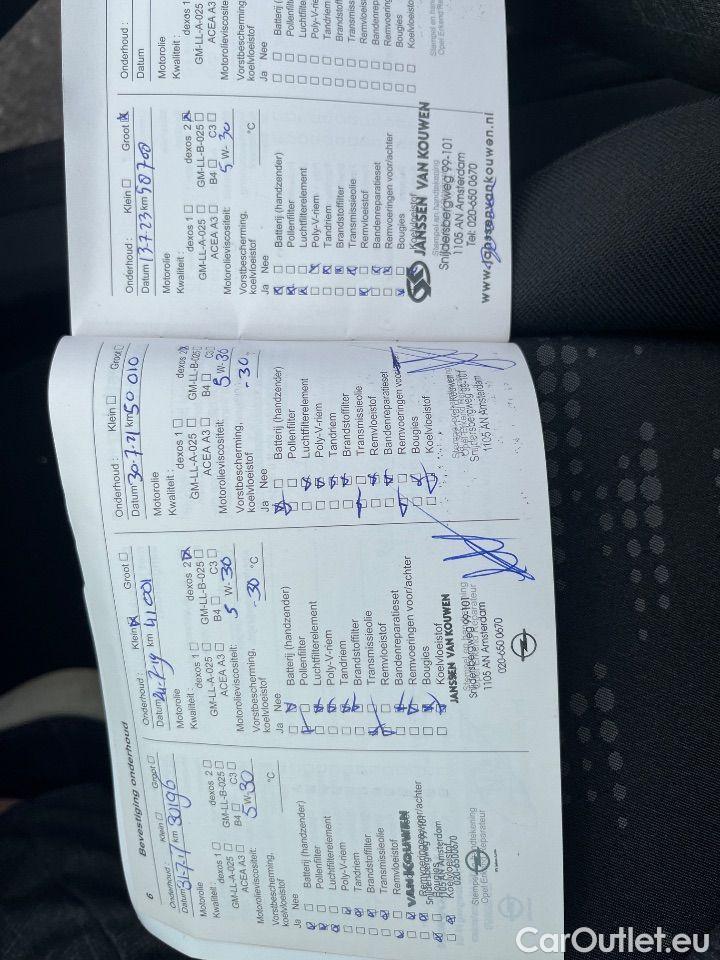 6
Bevestiging onderhoud
Onderhoud : Klein ☐ Groot ☐
Datum 31-7-17 km 30196
Motorolie
Kwaliteit : dexos 1 ☐ dexos 2 ☐
GM-LL-A-025 ☐ GM-LL-B-025 ☐
ACEA A3 ☐ B4 ☐ C3 ☐
Motorolieviscositeit: 5 W-30
Vorstbescherming,
koelvloeistof °C
Ja Nee
Batterij (handzender)
Pollenfilter
Luchtfilterelement
Poly-V-riem
Tandriem
Brandstoffilter
Transmissieolie
Remvloeistof
VAN KOUWEN
Remvoeringen voor/achter
Snijdersbergweg 99-101
Bougies
1105 AN Amsterdam
Koelvloeistof
020-6500670
Onderhoud : Klein ☒ Groot ☐
Datum 24-7-19 km 41001
Motorolie
Kwaliteit : dexos 1 ☐ dexos 2 ☒
GM-LL-A-025 ☐ GM-LL-B-025 ☐
ACEA A3 ☐ B4 ☐ C3 ☐
Motorolieviscositeit: 5 W-30
Vorstbescherming,
koelvloeistof -30 °C
Ja Nee
Batterij (handzender)
Pollenfilter
Luchtfilterelement
Poly-V-riem
Tandriem
Brandstoffilter
Transmissieolie
Remvloeistof
Bandenreparatieset
Remvoeringen voor/achter
Bougies
Koelvloeistof
JANSSEN VAN KOUWEN
Snijdersbergweg 99-101
1105 AN Amsterdam
020-650 0670
Onderhoud : Klein ☐ Groot ☐
Datum 30-7-21 km 50 010
Motorolie
Kwaliteit : dexos 1 ☐ dexos 2 ☒
GM-LL-A-025 ☐ GM-LL-B-025 ☐
ACEA A3 ☐ B4 ☐ C3 ☐
Motorolieviscositeit: 5 W-30
Vorstbescherming,
koelvloeistof -30
Ja Nee
Batterij (handzender)
Pollenfilter
Luchtfilterelement
Poly-V-riem
Tandriem
Brandstoffilter
Transmissieolie
Remvloeistof
Bandenreparatieset
Remvoeringen voor
Bougies
Koelvloeistof
Snijdersbergweg 99-101
1105 AN Amsterdam
Onderhoud : Klein ☐ Groot ☒
Datum 13723 km 50700
Motorolie
Kwaliteit : dexos 1 ☐ dexos 2 ☒
GM-LL-A-025 ☐ GM-LL-B-025 ☐
ACEA A3 ☐ B4 ☐ C3 ☐
Motorolieviscositeit: 5 W-30
Vorstbescherming,
koelvloeistof °C
Ja Nee
Batterij (handzender)
Pollenfilter
Luchtfilterelement
Poly-V-riem
Tandriem
Brandstoffilter
Transmissieolie
Remvloeistof
Bandenreparatieset
Remvoeringen voor/achter
Bougies
Koelvloeistof
JANSSEN VAN KOUWEN
Stempel en handtekening
Snijdersbergweg 99-101
1105 AN Amsterdam
Tel: 020-650 0670
www.janssenvankouwen.nl
Onderhoud :
Datum
Motorolie
Kwaliteit : dexos 1
GM-LL-A-025
ACEA A3
Motorolieviscositeit:
Vorstbescherming,
koelvloeistof
Ja Nee
Batterij (
Pollenfilter
Luchtfilter
Poly-V-rie
Tandriem
Brandstof
Transmiss
Remvloeis
Bandenrepa
Remvoering
Bougies
Koelvloeist
Stempel en hand
Opel Erkend Re
CarOutlet.eu